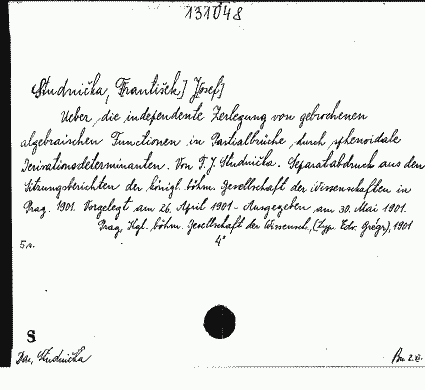 131048
Studnička, František] J[osef]
Ueber die independente Zerlegung von gebrochenen
algebraischen Functionen in Partialbrüche durch sphenoidale
Derivationsdeterminanten. Von F. J. Studnička. Separatabdruck aus den
Sitzungsberichten der königl. böhm. Gesellschaft der Wissenschaften in
Prag. 1901. Vorgelegt am 26. April 1901 - Ausgegeben am 30. Mai 1901.
Prag, Kgl. böhm. Gesellschaft der Wissensch., (Typ. Edv. Grégr), 1901
5 s. 4°
S
Dar, Studnička